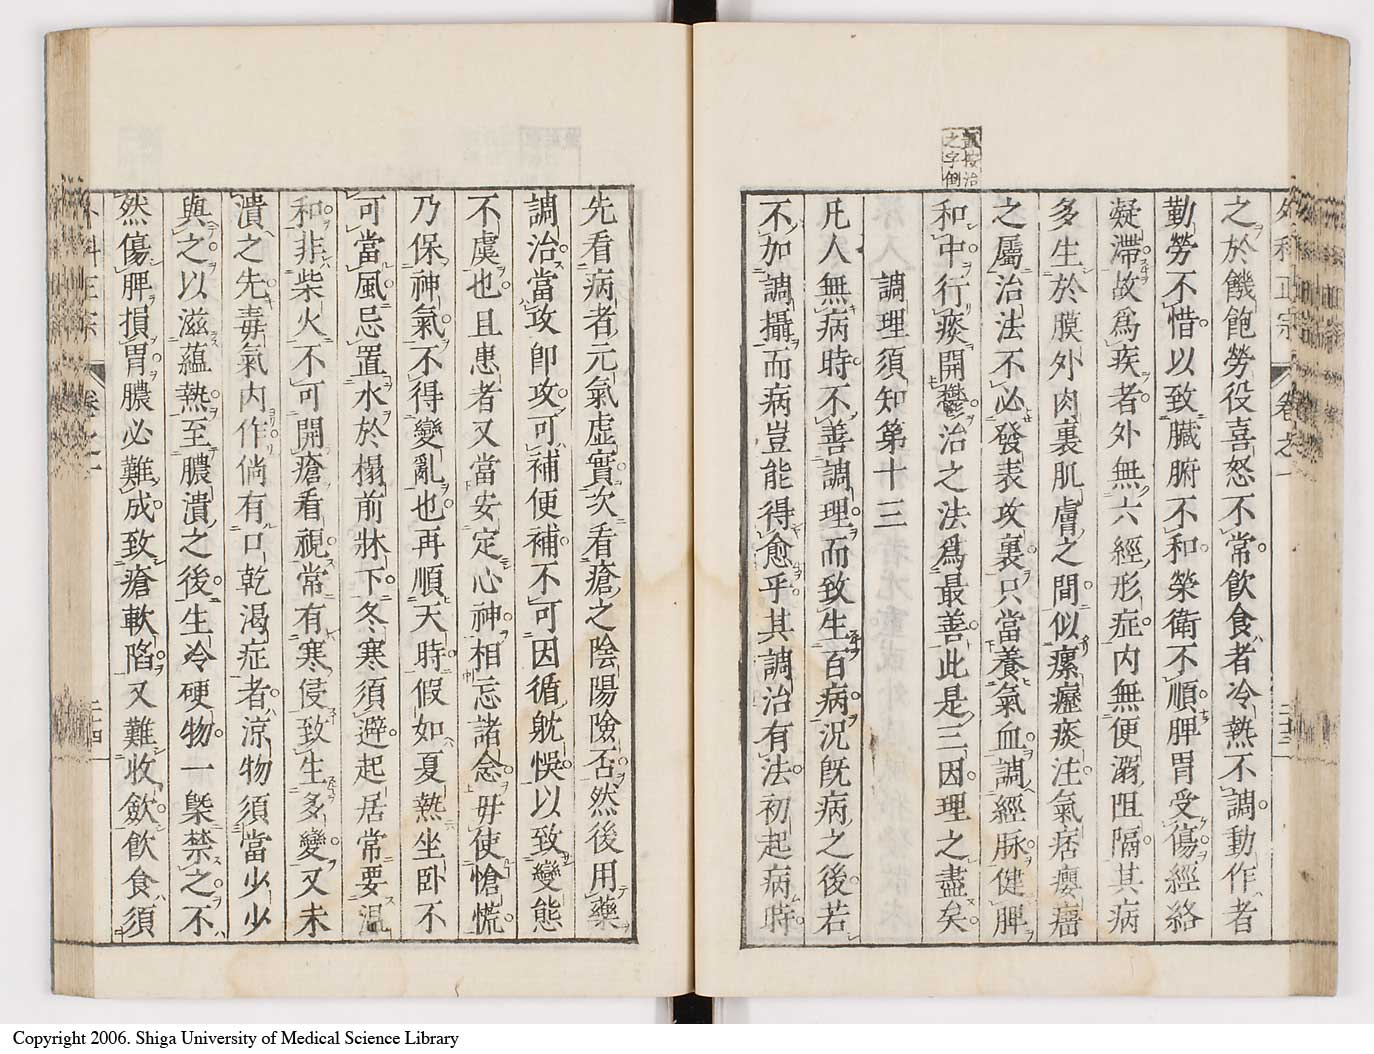 外科正宗 卷之一 二十三
之於饑飽勞役喜怒不常飲食者冷熱不調動作者
勤勞不惜以致臟腑不和榮衛不順脾胃受傷經絡
凝滯故爲疾者外無六經形症內無便溺阻隔其病
多生於膜外肉裏肌膚之間似瘰癧痰注氣痞癭癌
之屬治法不必發表攻裏只當養氣血調經脉健脾
和中行痰開鬱治之法爲最善此是三因理之盡矣
置按治
之字倒
調理須知第十三
凡人無病時不善調理而致生百病況旣病之後若
不加調攝而病豈能得愈乎其調治有法初起病時
先看病者元氣虛實次看瘡之陰陽險否然後用藥
調治當攻卽攻可補便補不可因循躭悞以致變態
不虞也且患者又當安定心神相忘諸念毋使愴慌
乃保神氣不得變亂也再順天時假如夏熱坐臥不
可當風忌置水於榻前牀下冬寒須避起居常要温
和非柴火不可開瘡看視常有寒侵致生多變又未
潰之先毒氣內作倘有口乾渴症者涼物須當少少
與之以滋蘊熱至膿潰之後生冷硬物一槩禁之不
然傷脾損胃膿必難成致瘡軟陷又難收斂飲食須
外科正宗 卷之一 二十四
Copyright 2006. Shiga University of Medical Science Library